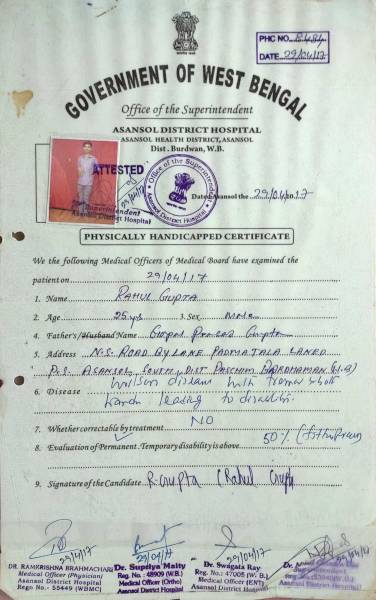 PHC NO. 8484
DATE 29/04/17
GOVERNMENT OF WEST BENGAL
Office of the Superintendent
ASANSOL DISTRICT HOSPITAL
ASANSOL HEALTH DISTRICT, ASANSOL
Dist. Burdwan, W.B.
ATTESTED
Superintendent
Asansol District Hospital
Office of the Superintendent
Asansol District Hospital
Dated Asansol the 29/04/2017
PHYSICALLY HANDICAPPED CERTIFICATE
We the following Medical Officers of Medical Board have examined the
patient on 29/04/17
1. Name RAHUL GUPTA
2. Age 25 yrs 3. Sex Male
4. Father's/Husband Name Gupta
5. Address N.S. ROAD BYLANE PADMATALA LANE
P.S. ASANSOL SOUTH, DIST PASCHIM BARDHAMAN (W.B)
6. Disease Wilson disease with tremor both
hands leading to disability.
7. Whether correctable by treatment NO
8. Evaluation of Permanent. Temporary disability is above 50% (fifty
9. Signature of the Candidate R. Gupta (Rahul Gupta
29/4/17
29/04/17
29/04/17
29/04/17
DR. RAMKRISHNA BRAHMACHARI
Medical Officer (Physician)
Asansol District Hospital
Regn No - 55449 (WBMC)
Dr. Supriya Maity
Reg. No.: 48909 (W.B.)
Medical Officer (Ortho)
Asansol District Hospital
Dr. Swagata Ray
Reg. No.: 47005 (W.B.)
Medical Officer (ENT)
Asansol District Hospital
Dr.
Superintendent
Asansol District Hospital